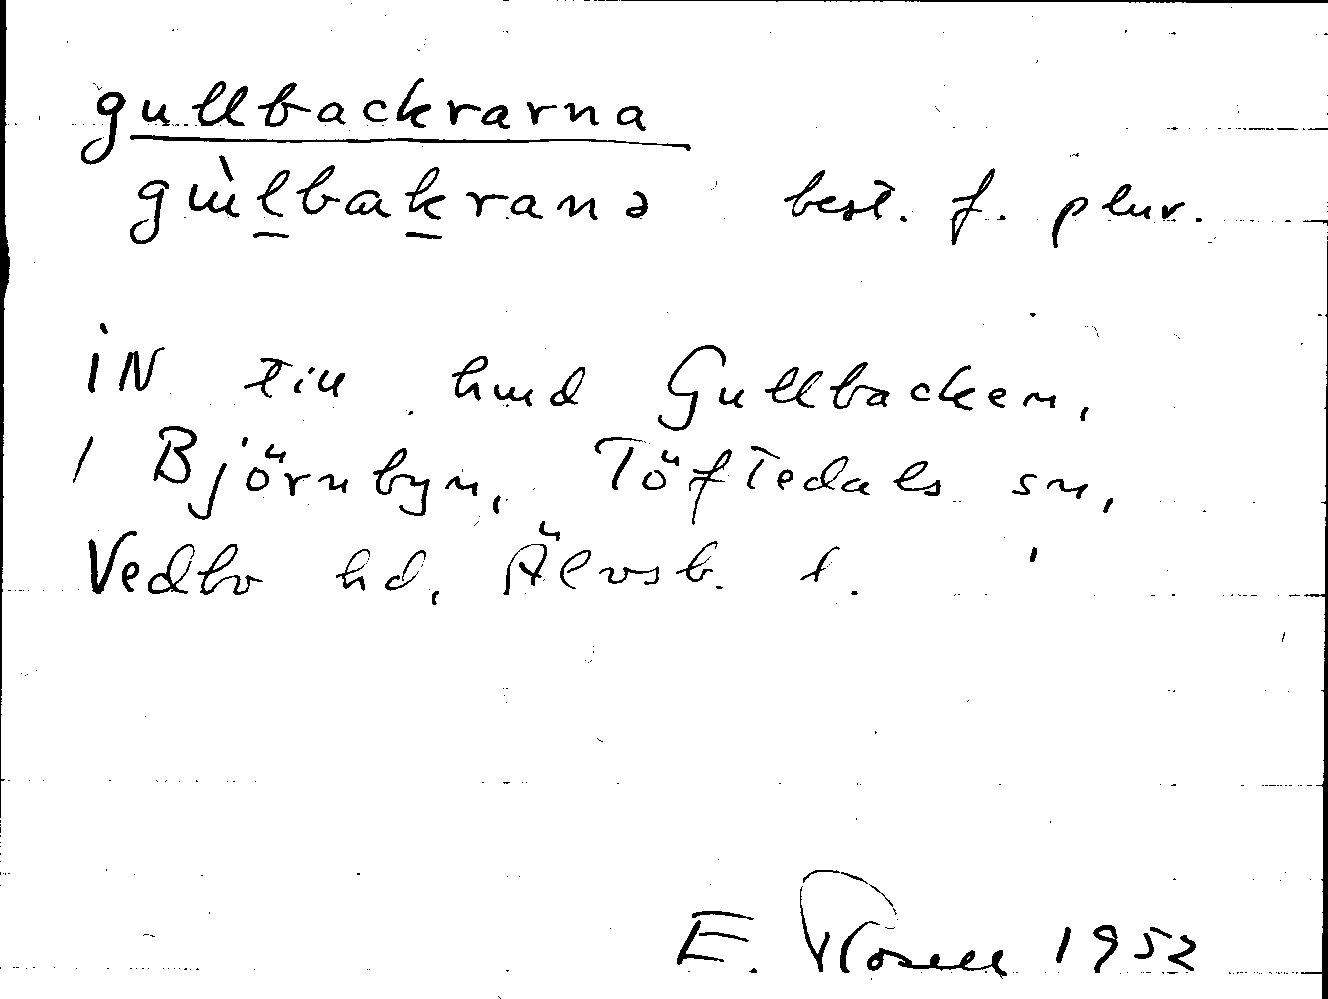 gullbackrarna
gùl̲bak̲ranə best. f. plur.
iN till hmd Gullbacken,
i Björnbyn, Töftedals sn,
Vedbo hd, Älvsb. l.
E. Rosell 1952